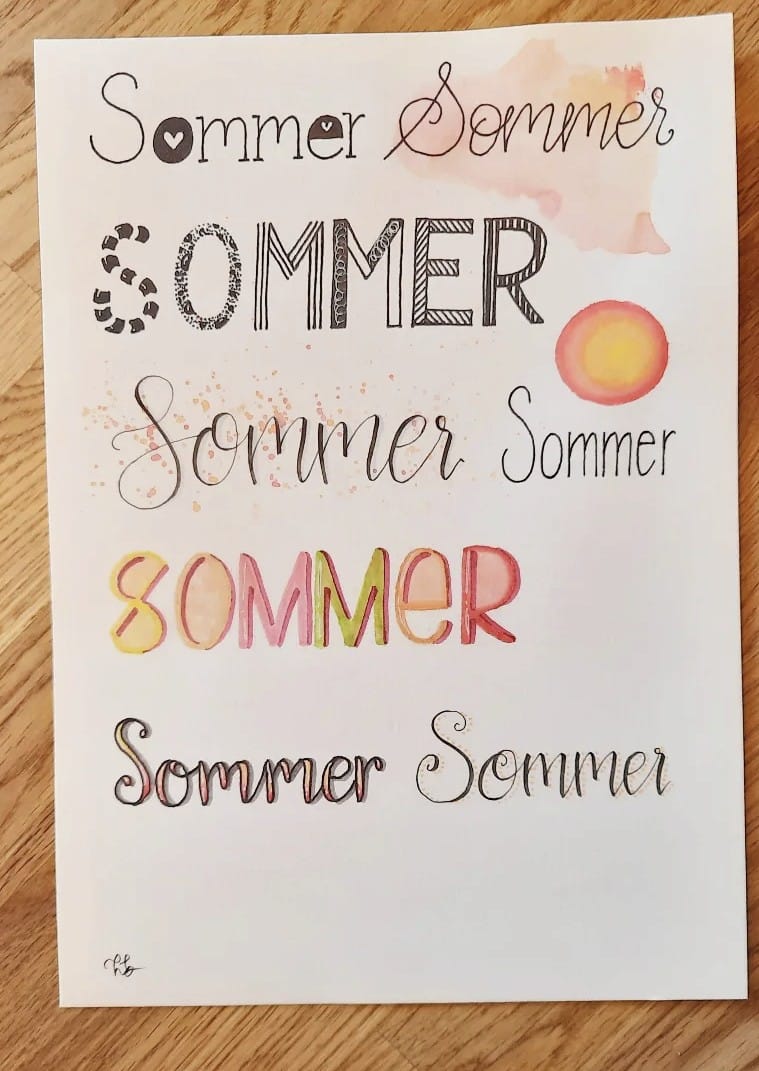 Sommer Sommer
SOMMER
Sommer Sommer
SOMMeR
Sommer Sommer